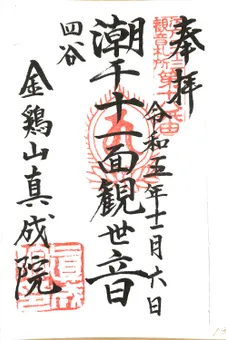 奉拝
観音札所
令和五年十一月六日
潮干十一面観世音
四谷
金鶏山真成院